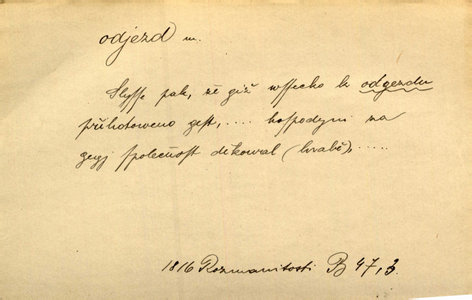 odjezd m.
Slysse pak, že giž wssecko k odgezdu
přihotoweno gest, .... hospodyni za
gegj společnost děkowal (hrabě), .....
1816 Rozmanitosti B 47, 3.